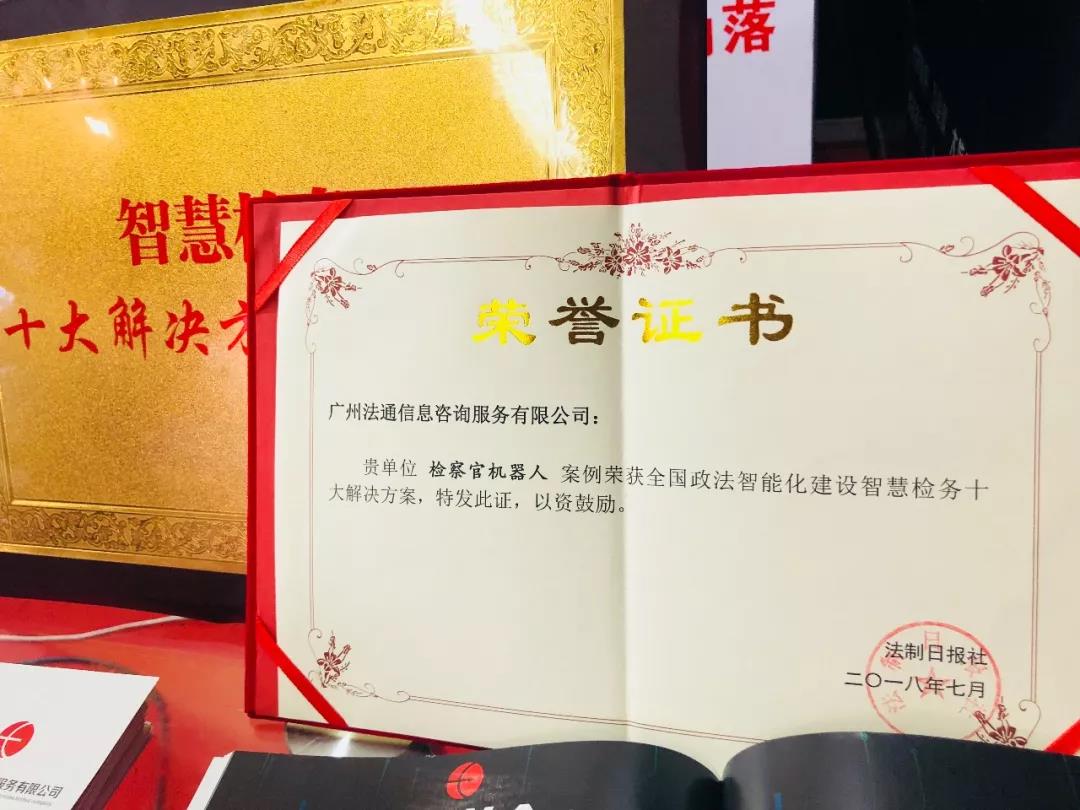 落
智慧检
十大解决方
荣誉证书
广州法通信息咨询服务有限公司：
贵单位 检察官机器人 案例荣获全国政法智能化建设智慧检务十
大解决方案，特发此证，以资鼓励。
法制日报社
二〇一八年七月
服务有限公司